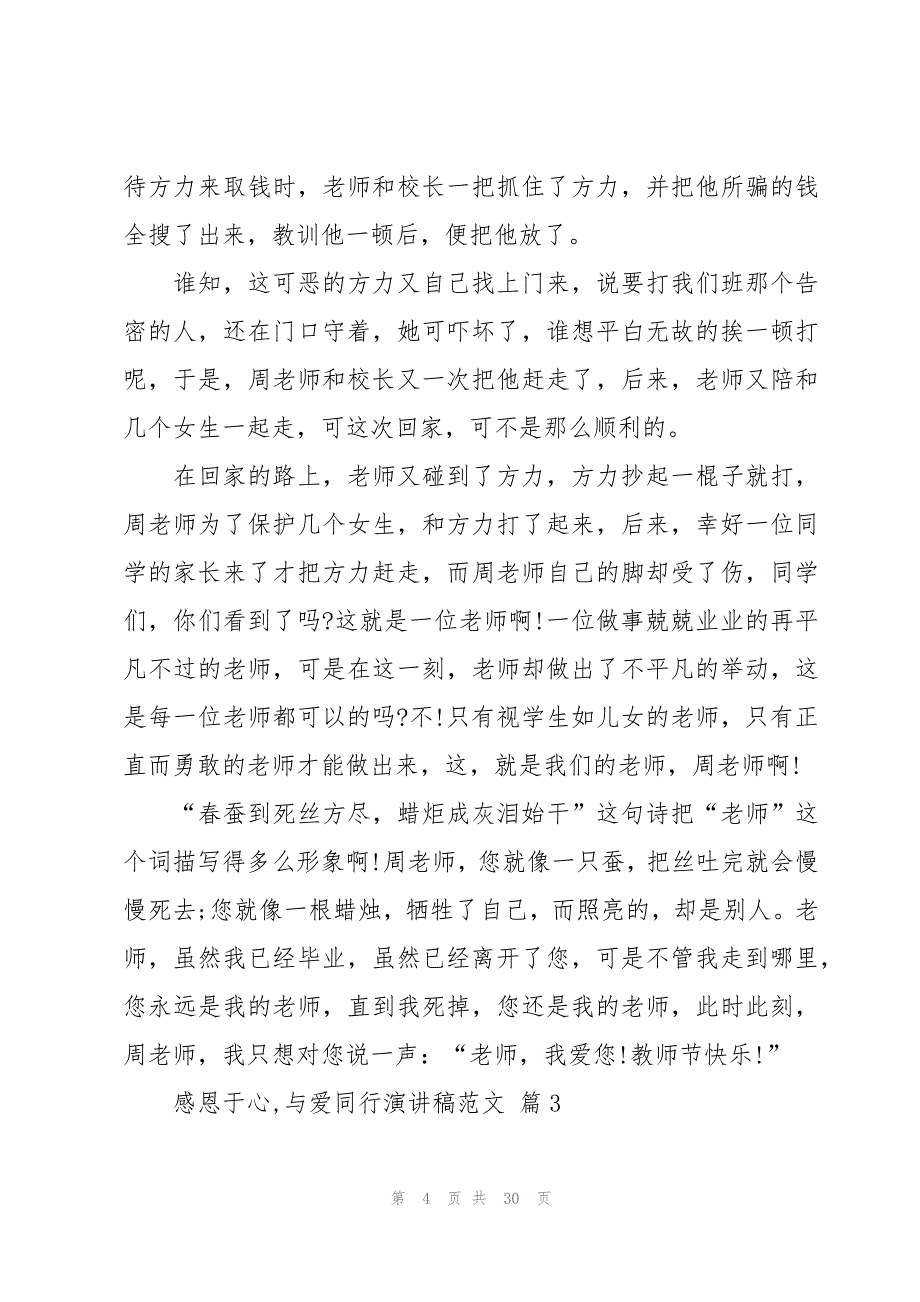 待方力来取钱时，老师和校长一把抓住了方力，并把他所骗的钱
全搜了出来，教训他一顿后，便把他放了。
谁知，这可恶的方力又自己找上门来，说要打我们班那个告
密的人，还在门口守着，她可吓坏了，谁想平白无故的挨一顿打
呢，于是，周老师和校长又一次把他赶走了，后来，老师又陪和
几个女生一起走，可这次回家，可不是那么顺利的。
在回家的路上，老师又碰到了方力，方力抄起一棍子就打，
周老师为了保护几个女生，和方力打了起来，后来，幸好一位同
学的家长来了才把方力赶走，而周老师自己的脚却受了伤，同学
们，你们看到了吗?这就是一位老师啊!一位做事兢兢业业的再平
凡不过的老师，可是在这一刻，老师却做出了不平凡的举动，这
是每一位老师都可以的吗?不!只有视学生如儿女的老师，只有正
直而勇敢的老师才能做出来，这，就是我们的老师，周老师啊!
“春蚕到死丝方尽，蜡炬成灰泪始干”这句诗把“老师”这
个词描写得多么形象啊!周老师，您就像一只蚕，把丝吐完就会慢
慢死去;您就像一根蜡烛，牺牲了自己，而照亮的，却是别人。老
师，虽然我已经毕业，虽然已经离开了您，可是不管我走到哪里，
您永远是我的老师，直到我死掉，您还是我的老师，此时此刻，
周老师，我只想对您说一声：“老师，我爱您!教师节快乐!”
感恩于心,与爱同行演讲稿范文 篇3
第 4 页 共 30 页